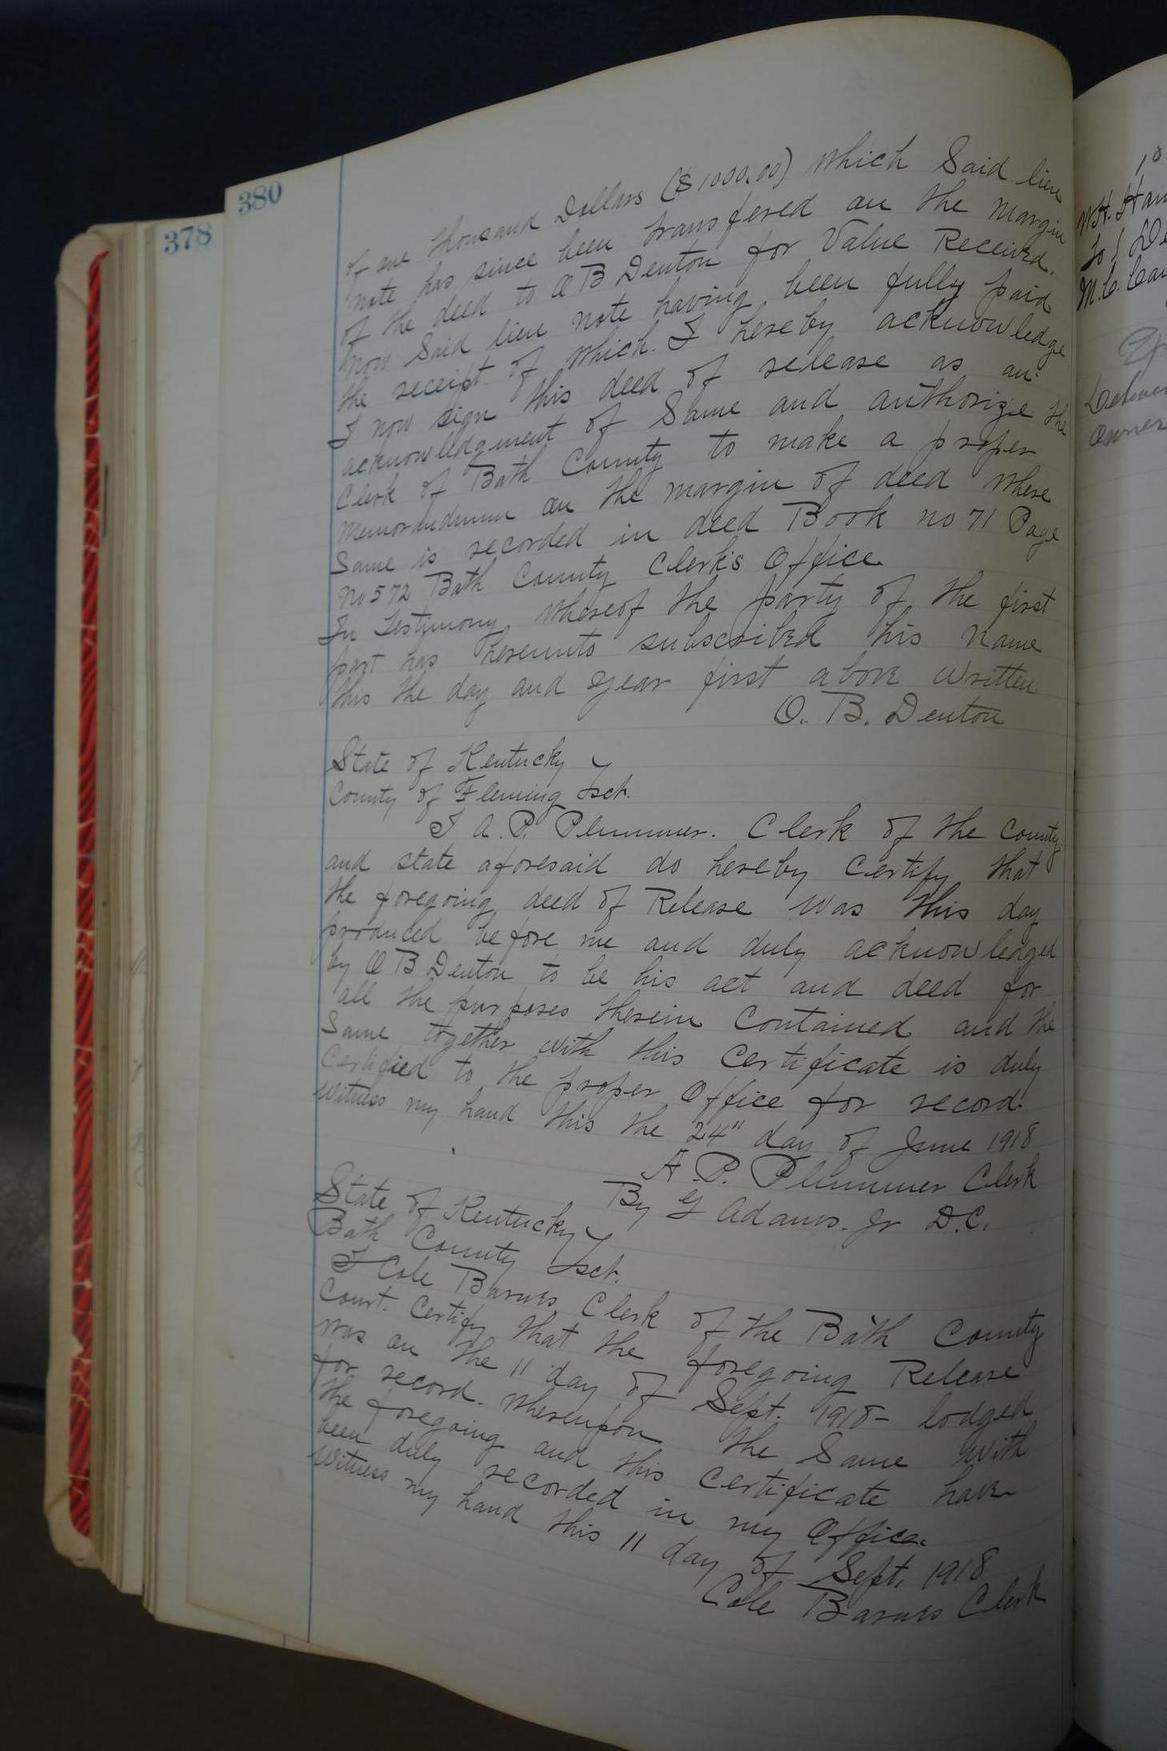 380
378
of one thousand Dollars ($1000.00) which Said lien
note has since been transfered on the Margin
of the deed to O B Denton for Value Received.
Now Said lien note having been fully paid
the receipt of which I hereby acknowledge
I now sign this deed of release as an
acknowledgment of Same and authorize the
Clerk of Bath County to make a proper
Memorandum on the margin of deed where
Same is recorded in deed Book no 71 Page
No 572 Bath County Clerks Office.
In Testimony whereof the party of the first
part has hereunto subscribed his name
this the day and year first above written
O. B. Denton
State of Kentucky
County of Fleming Sct.
I A. P. Plummer. Clerk of the County
and state aforesaid do hereby Certify that
the foregoing deed of Release was this day
produced before me and duly acknowledged
by O B Denton to be his act and deed for
all the purposes therein Contained and the
Same together with this Certificate is duly
Certified to the proper Office for record.
Witness my hand this the 24" day of June 1918
A. P. Plummer Clerk
By G Adams. Jr D.C.
State of Kentucky
Bath County Sct.
I Cole Barnes Clerk of the Bath County
Court. Certify that the foregoing Release
was on the 11 day of Sept. 1918- lodged
for record. Whereupon the Same with
the foregoing and this Certificate have
been duly recorded in my Office.
Witness my hand this 11 day of Sept. 1918
Cole Barnes Clerk
W.H.
To
M.C.